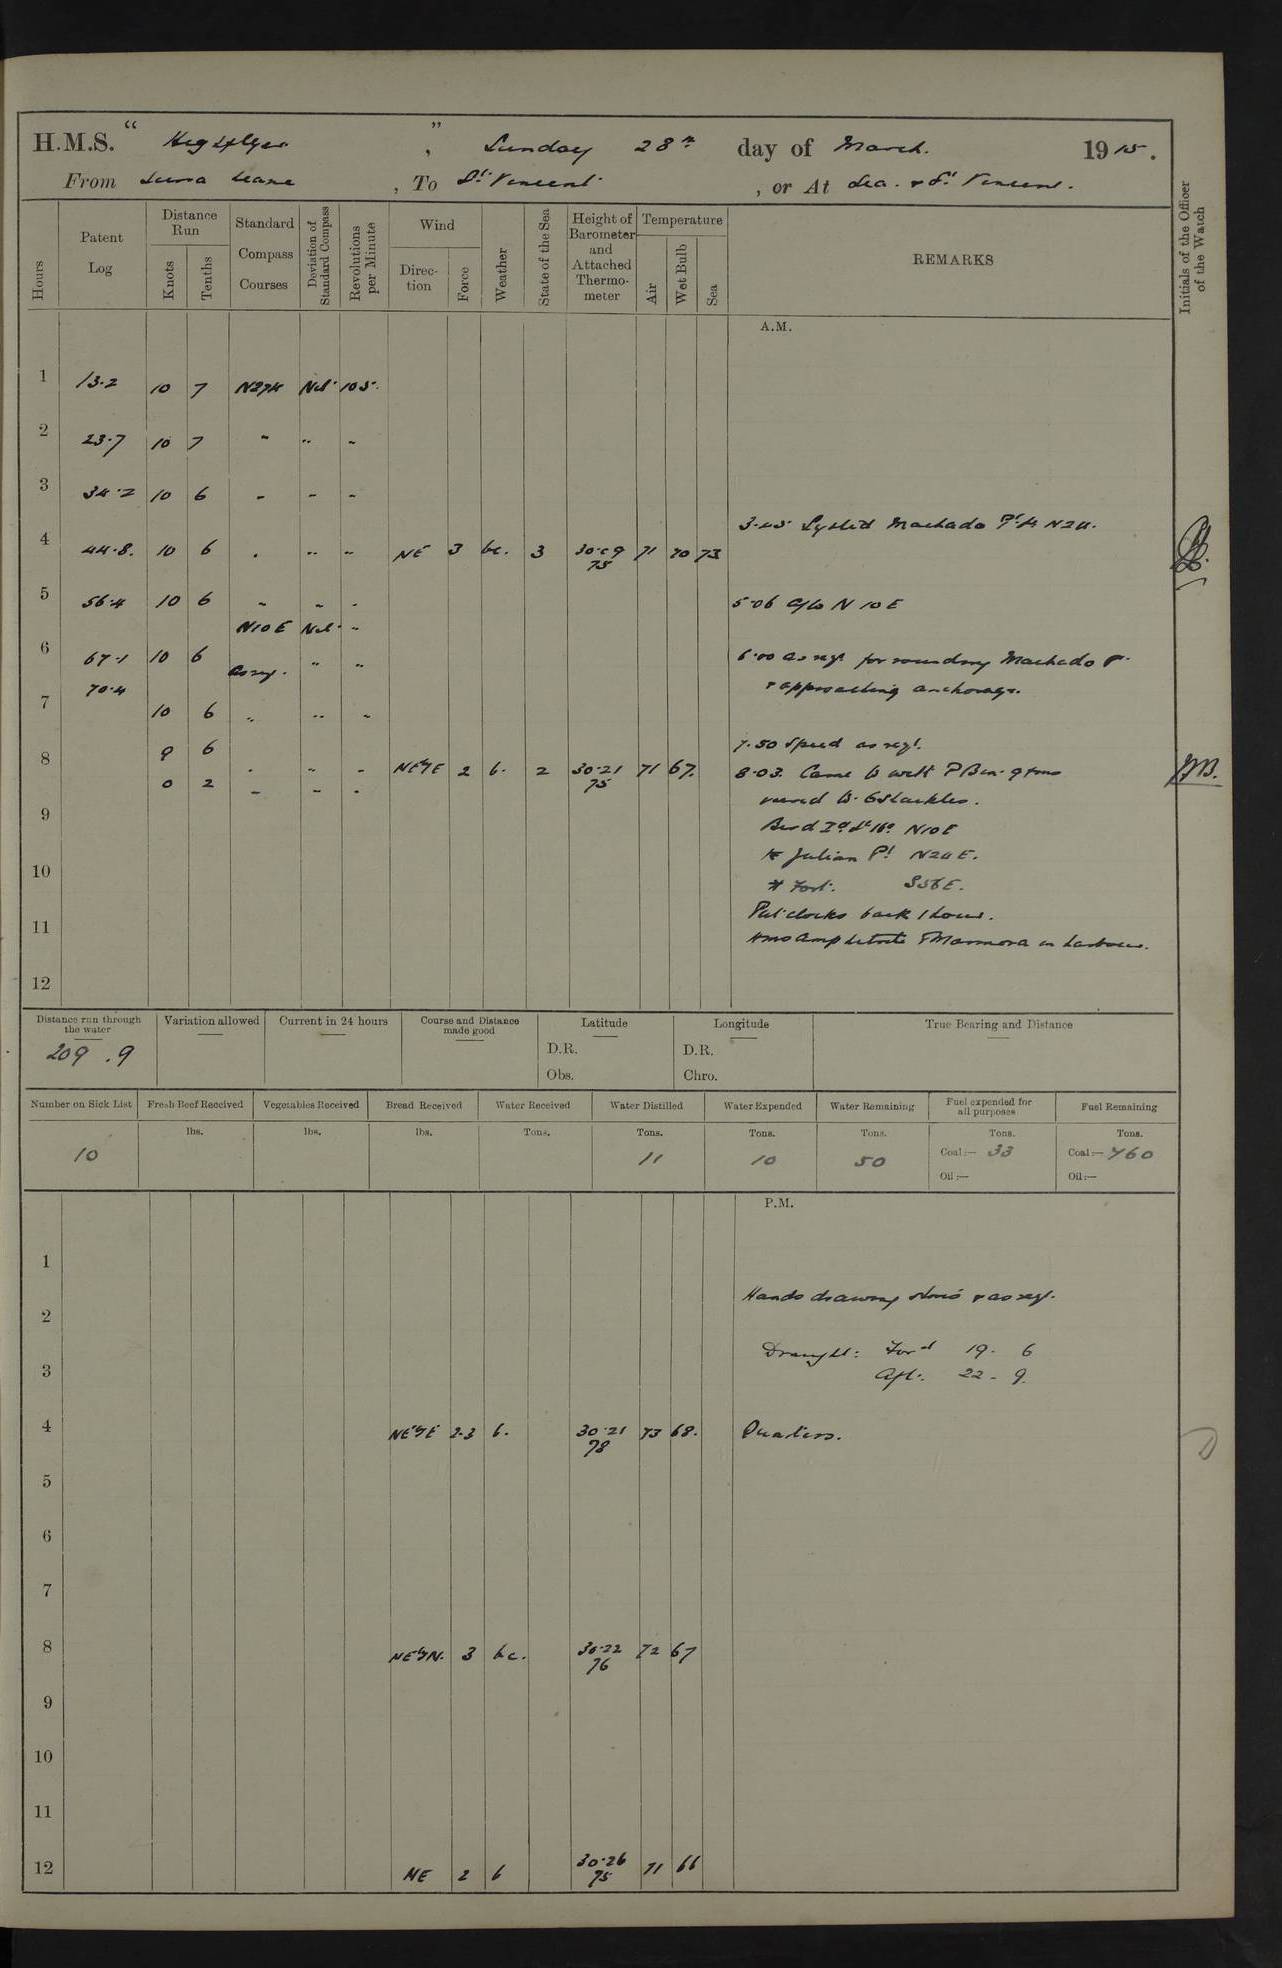 H.M.S. “ Highflyer ” , Sunday 28th day of March. 1915.
From Sierra Leone , To St Vincent , or At Sea. & St Vincent.
Hours
Patent Log
Distance Run
Knots
Tenths
Standard Compass Courses
Deviation of Standard Compass
Revolutions per Minute
Wind
Direction
Force
Weather
State of the Sea
Height of Barometer and Attached Thermometer
Temperature
Air
Wet Bulb
Sea
REMARKS
Initials of the Officer of the Watch
A.M.
1 13.2 10 7 N27W Nil 105.
2 23.7 10 7 " " "
3 34.2 10 6 " " "
3.45 Sighted Machado Pt. Lt N2W.
4 44.8. 10 6 " " " NE 3 bc. 3 30.09 75 71 70 73
5 56.4 10 6 " " " 5.06 A/co N 10 E
N10E Nil "
6 67.1 10 6 As req. " " 6.00 as req. for rounding Machado Pt
70.4 & approaching anchorage.
7 10 6 " " "
9 6 7.50 Speed as reqd.
8 " " " NE'yE 2 b. 2 30.21 75 71 67. 8.03. Came to with P Bower 9 fms
0 2 " " " veered to 6 Shackles.
9 Bird Id Lt Ho N10E
Julian Pt N24E.
10 Fort. S56E.
Put clocks back 1 hour.
11 HMS Amphitrite & Marmora in harbour.
12
Distance run through the water
209 .9
Variation allowed
Current in 24 hours
Course and Distance made good
Latitude
D.R.
Obs.
Longitude
D.R.
Chro.
True Bearing and Distance
Number on Sick List
10
Fresh Beef Received
lbs.
Vegetables Received
lbs.
Bread Received
lbs.
Water Received
Tons.
Water Distilled
Tons.
11
Water Expended
Tons.
10
Water Remaining
Tons.
50
Fuel expended for all purposes
Tons.
Coal:— 33
Oil:—
Fuel Remaining
Tons.
Coal:— 760
Oil:—
P.M.
1
Hands drawing stores & as req.
2
Draught: Ford 19. 6
3 Aft. 22 - 9.
4 NE'yE 2.3 b. 30.21 78 73 68. Quarters.
5
6
7
8 NE'yN. 3 bc. 30.22 76 72 67
9
10
11
12 NE 2 b 30.26 75 71 66